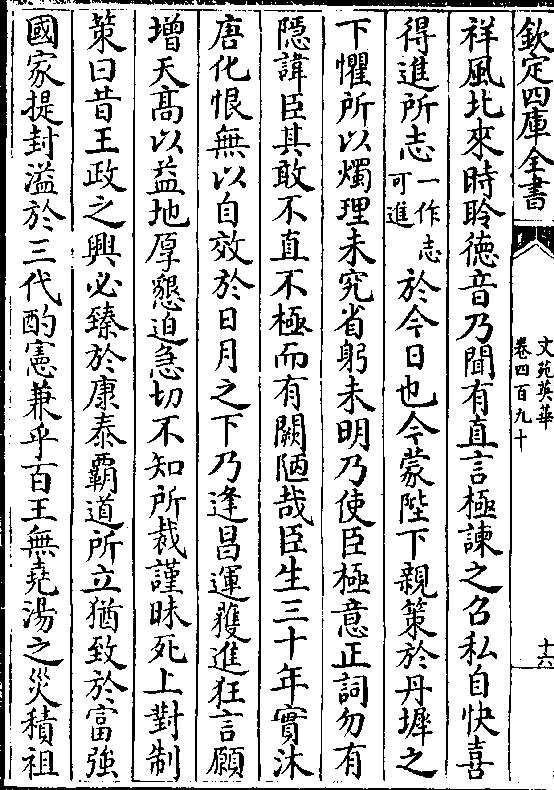 欽定四庫全書
文苑英華
卷四百九十
十六
祥風北來時聆德音乃聞有直言極諫之召私自快喜
得進所志一作志可進於今日也今蒙陛下親策於丹墀之
下懼所以燭理未究省躬未明乃使臣極意正詞勿有
隱諱臣其敢不直不極而有闕陋哉臣生三十年實沐
唐化恨無以自效於日月之下乃逢昌運獲進狂言願
增天髙以益地厚懇迫急切不知所裁謹昧死上對制
策曰昔王政之興必臻於康泰覇道所立猶致於富強
國家提封溢於三代酌憲兼乎百王無堯湯之災積祖